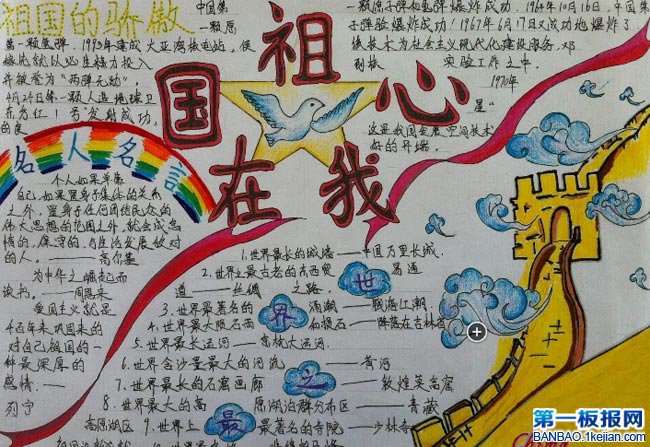 祖国的骄傲
中国第
一颗原
一颗原子弹和氢弹爆炸成功。1964年10月16日,中国第
子弹验爆炸成功!1967年6月17日又成功地爆炸了
第一颗氢弹。1995年建成大亚湾核电站,使
核技术为社会主义现代化建设服务。邓
稼先就以必生精力投入
到核
实验工作之中。
并被誉为“两弹元勋”
1970年
4月24日第一颗人造地球卫
星“
东方红1号”发射成功,
这是我国发展空间技术
的良
好的开端。
祖
国
心
在
我
名人名言
个人如果单靠
自己,如果置身于集体的关系
之外,置身于任何团结民众的
伟大思想的范围之外,就会成怠
惰的、保守的、与生活发展敌对
的人。——高尔基
为中华之崛起而
读书。——周恩来
爱国主义就是
千百年来巩固来的
对自己祖国的一
种最深厚的
感情。——
列宁
世
界
之
最
1.世界最长的城墙——中国万里长城。
2.世界上最古老的东西贸易通
道——丝绸之路。
3.世界最著名的涌潮——钱海江潮。
4.世界最大陨石雨 仙授石——降落在吉林省
5.世界最长运河——京杭大运河。
6.世界含沙量最大的河流——黄河
7.世界最长的石窟画廊——敦煌莫高窟
8.世界最大的高原湖泊群分布区——青藏
高原湖区
9.世界上最著名的寺院——少林寺
China
第一板报网
BANBAO.1kejian.com